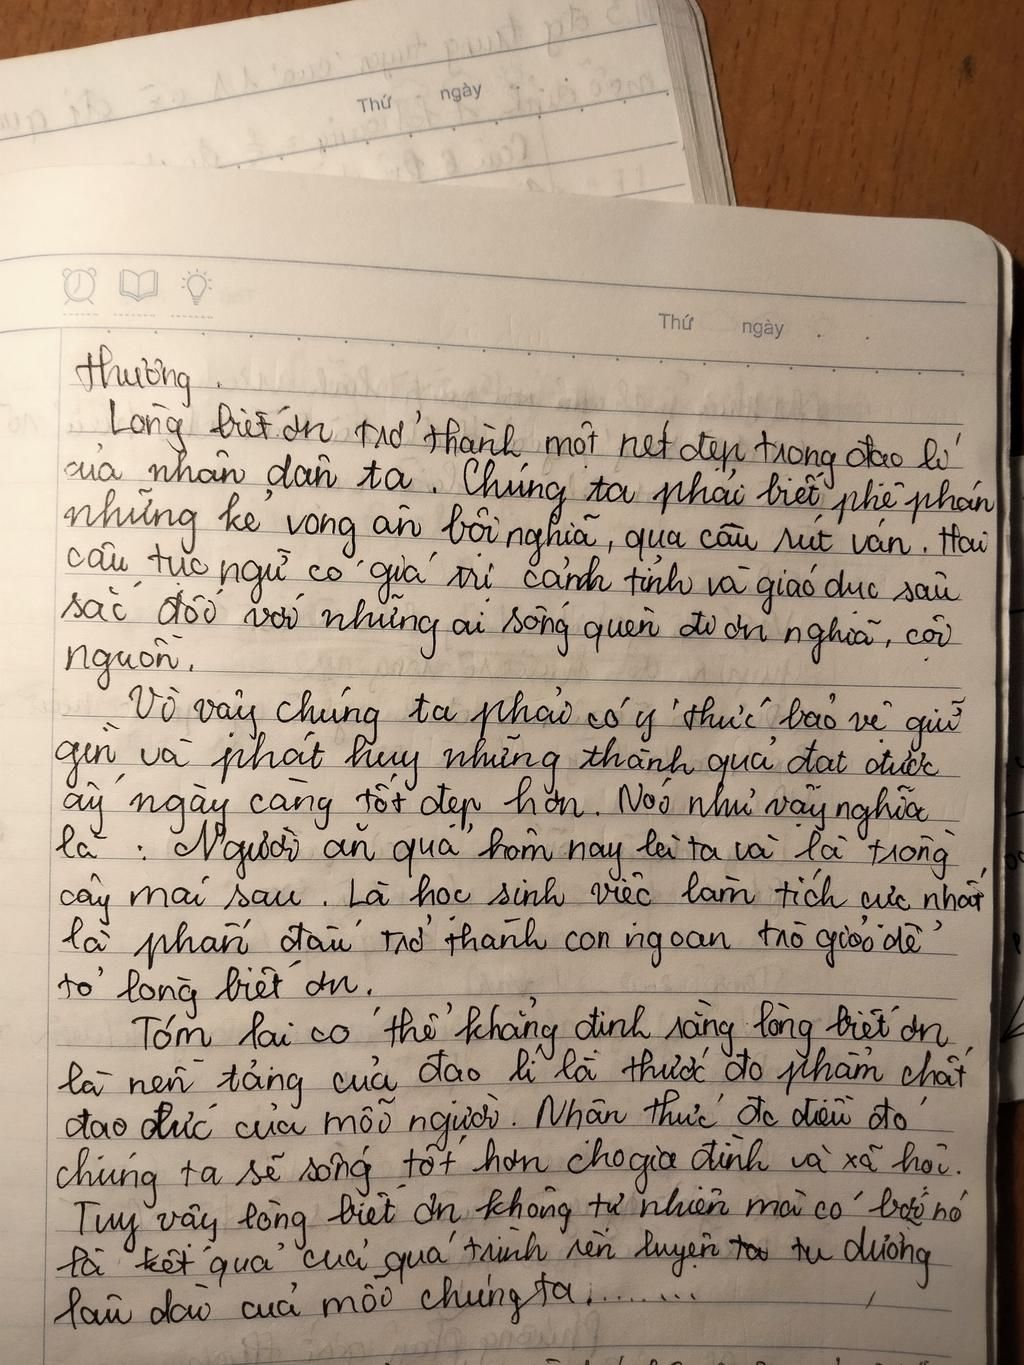 Thứ ngày
Thứ ngày
thường.
Lòng biết ơn trở thành một nét đẹp trong đạo lí
của nhân dân ta. Chúng ta phải biết phê phán
những kẻ vong ân bội nghĩa, qua cầu rút ván. Hai
câu tục ngữ có giá trị cảnh tỉnh và giáo dục sâu
sắc đối với những ai sống quên đi ơn nghĩa, cội
nguồn.
Vì vậy chúng ta phải có ý thức bảo vệ giữ
gìn và phát huy những thành quả đạt được
ấy ngày càng tốt đẹp hơn. Nói như vậy nghĩa
là : Người ăn quả hôm nay là ta và là trồng
cây mai sau. Là học sinh việc làm tích cực nhất
là phấn đấu trở thành con ngoan trò giỏi để
tỏ lòng biết ơn.
Tóm lại có thể khẳng định rằng lòng biết ơn
là nền tảng của đạo lí là thước đo phẩm chất
đạo đức của mỗi người. Nhận thức đc điều đó
chúng ta sẽ sống tốt hơn cho gia đình và xã hội.
Tuy vậy lòng biết ơn không tự nhiên mà có bởi nó
là kết quả của quá trình rèn luyện tu dưỡng
lâu dài của mỗi chúng ta........